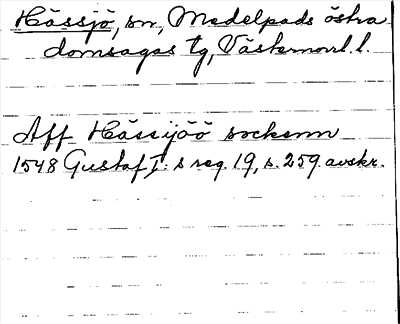 Hässjö, sn, Medelpads östra
domsagas tg, Västernorrl. l.
Aff Hässijöö sockenn
1548 Gustaf I: s reg. 19, s. 259. avskr.